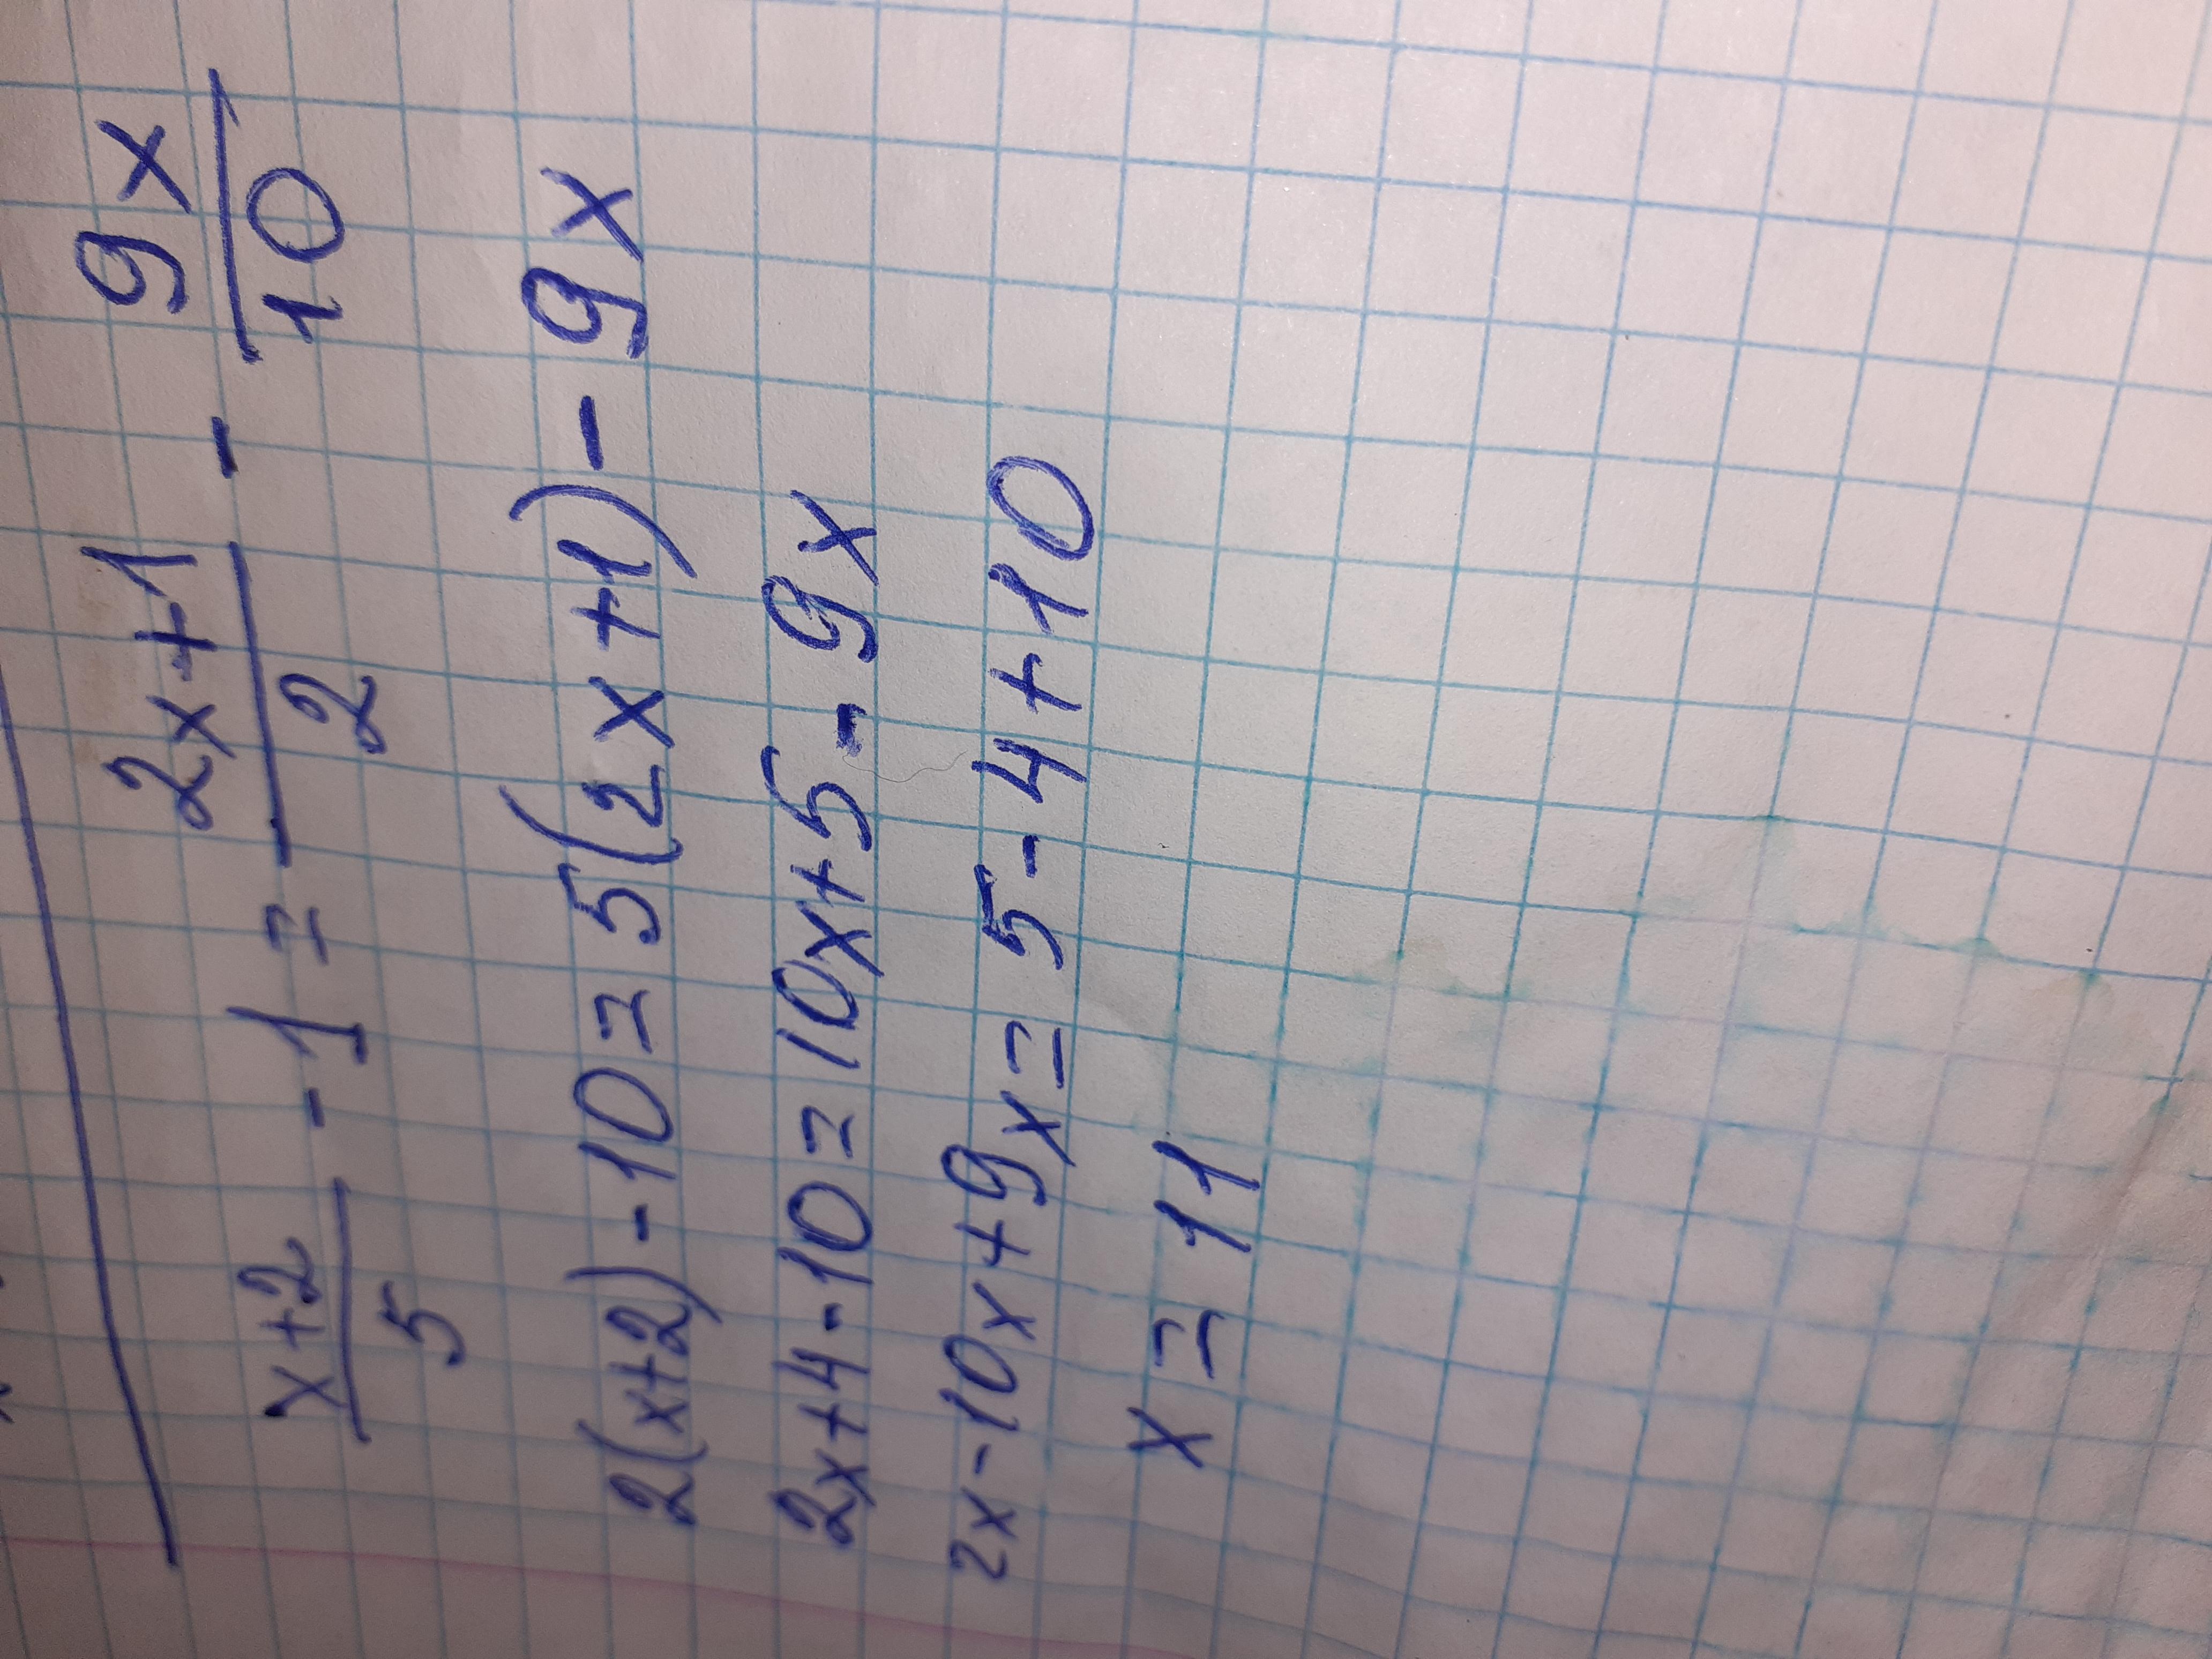 x+2/5 - 1 = 2x+1/2 - 9x/10
2(x+2) - 10 = 5(2x+1) - 9x
2x+4-10 = 10x+5 - 9x
2x-10x+9x = 5-4+10
x = 11